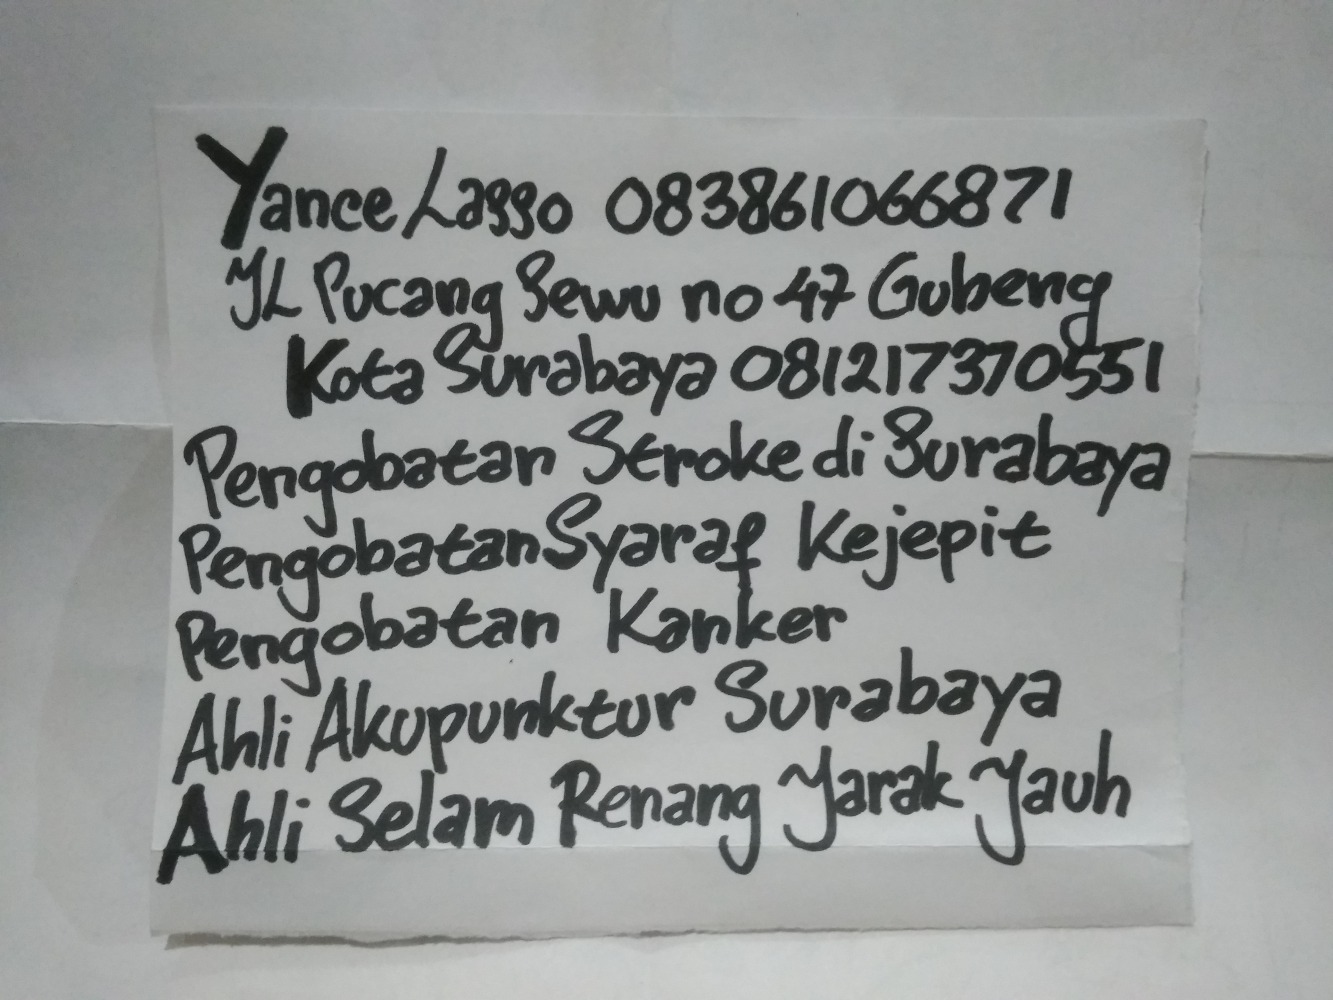 Yance Lasso 083861066871
JL Pucang Sewu no 47 Gubeng
Kota Surabaya 081217370551
Pengobatan Stroke di Surabaya
Pengobatan Syaraf Kejepit
Pengobatan Kanker
Ahli Akupunktur Surabaya
Ahli Selam Renang Jarak Jauh